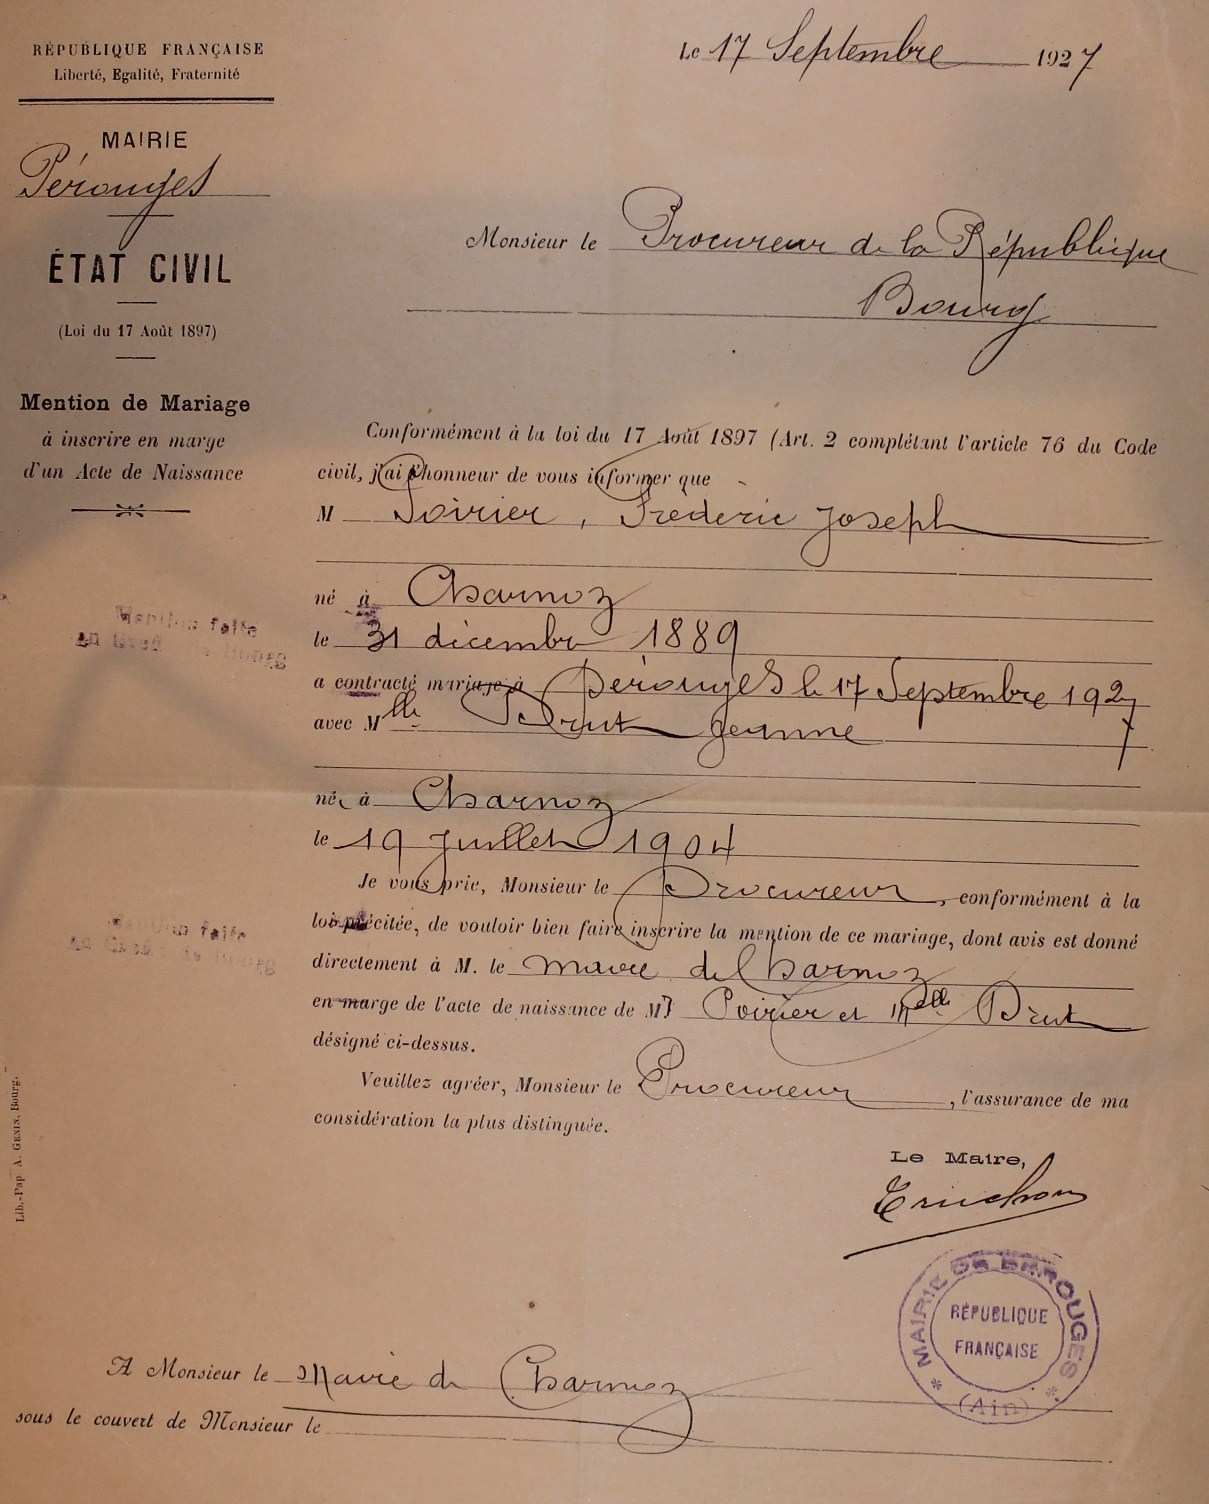 RÉPUBLIQUE FRANÇAISE
Liberté, Egalité, Fraternité
MAIRIE
Pérouges
ÉTAT CIVIL
(Loi du 17 Août 1897)
Mention de Mariage
à inscrire en marge
d'un Acte de Naissance
Mention faite
au Greffe de Bourg
Mention faite
au Greffe de Bourg
Lib.-Pap A. GENIN, Bourg.
Le 17 Septembre 1927
Monsieur le Procureur de la République
Bourg
Conformément à la loi du 17 Août 1897 (Art. 2 complétant l'article 76 du Code
civil, j'ai l'honneur de vous informer que
M Poirier, Frédéric Joseph
né à Charnoz
le 31 décembre 1889
a contracté mariage à Pérouges le 17 Septembre 1927
avec Mlle Brut Jeanne
née à Charnoz
le 19 Juillet 1904
Je vous prie, Monsieur le Procureur, conformément à la
loi précitée, de vouloir bien faire inscrire la mention de ce mariage, dont avis est donné
directement à M. le maire de Charnoz
en marge de l'acte de naissance de M Poirier et Melle Brut
désigné ci-dessus.
Veuillez agréer, Monsieur le Procureur, l'assurance de ma
considération la plus distinguée.
Le Maire,
MAIRIE DE PEROUGES
RÉPUBLIQUE
FRANÇAISE
(Ain)
A Monsieur le Maire de Charnoz
sous le couvert de Monsieur le